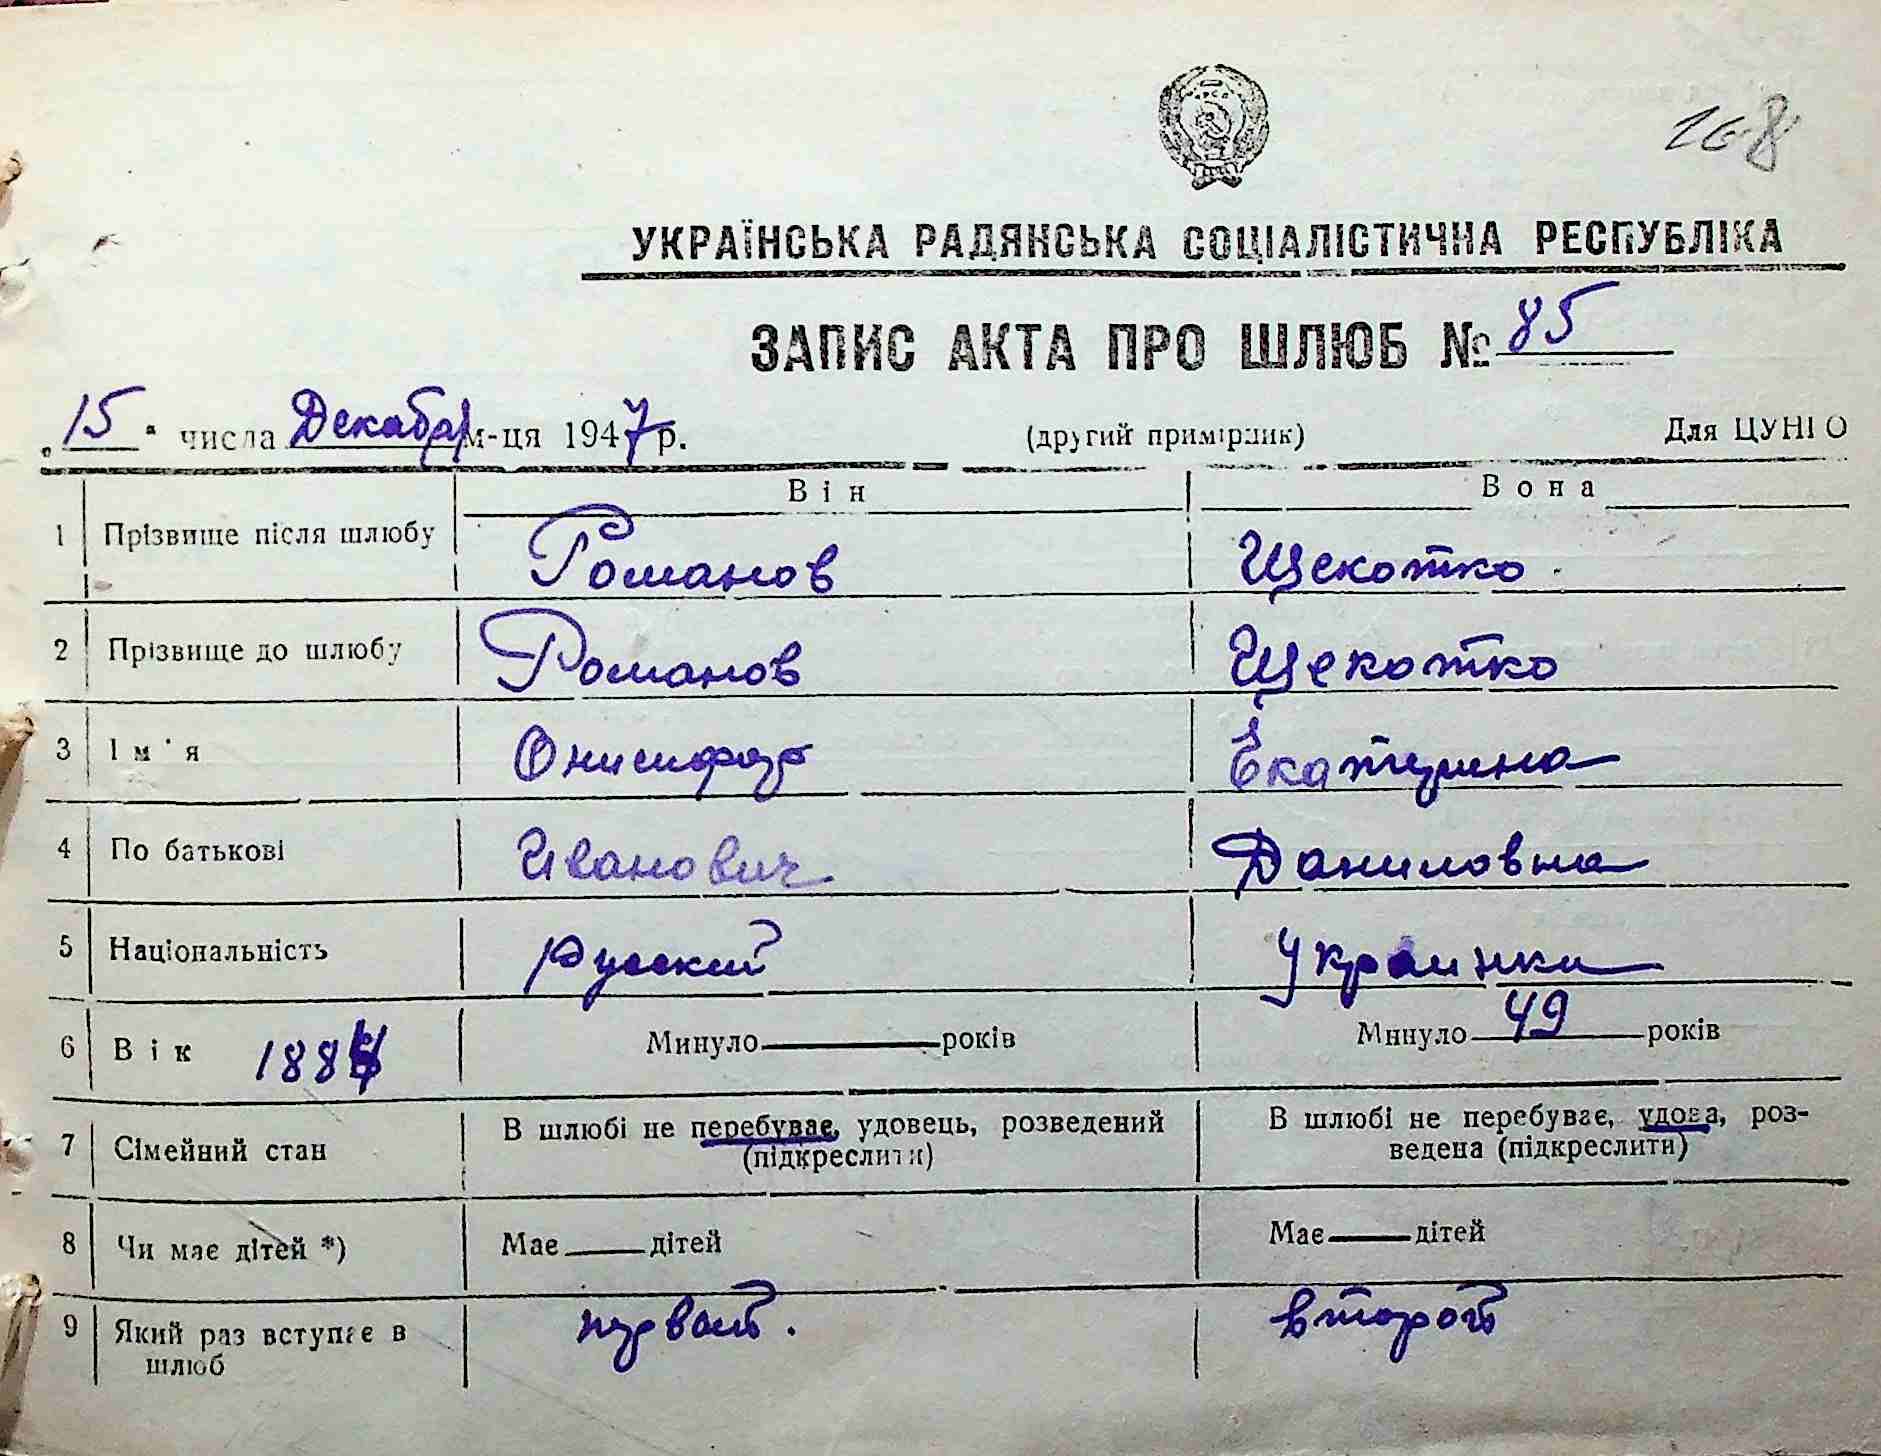 168
УКРАЇНСЬКА РАДЯНСЬКА СОЦІАЛІСТИЧНА РЕСПУБЛІКА
ЗАПИС АКТА ПРО ШЛЮБ № 85
„15“ числа Декабря м-ця 1947 р. (другий примірник) Для ЦУНГО
Він Вона
1 Прізвище після шлюбу Романов Щекотко
2 Прізвище до шлюбу Романов Щекотко
3 Ім'я Онисифор Екатерина
4 По батькові Иванович Даниловна
5 Національність русский Украинка
6 Вік Минуло років Минуло 49 років
7 Сімейний стан В шлюбі не перебуває, удовець, розведений (підкреслити) В шлюбі не перебуває, удова, роз-
ведена (підкреслити)
8 Чи має дітей *) Має дітей Має дітей
9 Який раз вступає в шлюб первый. второй